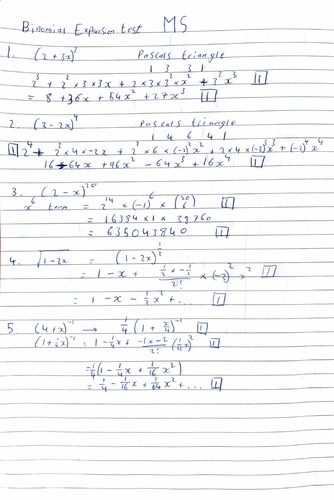 Binomial Expansion test MS
1. (2+3x)³ Pascals triangle
1 3 3 1
2³ + 2² × 3 × 3x + 2 × 3 × 3² × x² + 3³x³ [1]
= 8 + 36x + 54x² + 27x³ [1]
2. (2-2x)⁴ Pascals triangle
1 4 6 4 1
[1] 2⁴ + 2³ × 4 × -2x + 2² × 6 × (-2)²x² + 2 × 4 × (-2)³x³ + (-2)⁴x⁴
16 - 64x + 96x² - 64x³ + 16x⁴ [1]
3. (2-x)²⁰
x⁶ term = 2¹⁴ × (-1)⁶ × (20 6) [1]
= 16384 × 1 × 38760
= 635043840 [1]
4. √1-2x = (1-2x)^½ [1]
= 1 - x + ½ × -½ / 2! × (-2)² x² [1]
= 1 - x - ½x² + ... [1]
5. (4+x)⁻¹ → ¼(1 + x/4)⁻¹ [1]
(1+¼x)⁻¹ = 1 - ¼x + -1 × -2 / 2! (¼x)² [1]
= ¼(1 - ¼x + 1/16 x²)
= ¼ - 1/16 x + 1/64 x² + ... [1]